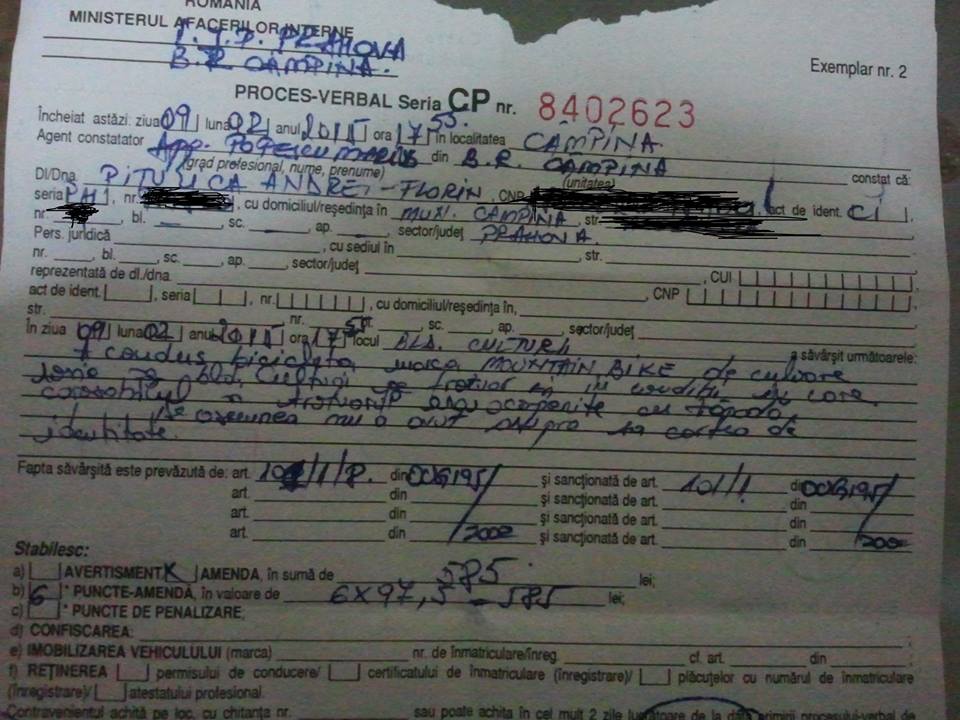 ROMÂNIA
MINISTERUL AFACERILOR INTERNE
I.J.P. PRAHOVA
B.R CAMPINA.
Exemplar nr. 2
PROCES-VERBAL Seria CP nr. 8402623
Încheiat astăzi: ziua 09 luna 02 anul 2015 ora 17 55. în localitatea CAMPINA
Agent constatator App. POPESCU MARIUS din B.R. CAMPINA
(grad profesional, nume, prenume) (unitatea) constat că:
Dl/Dna PITULICA ANDREI-FLORIN, CNP
seria PH, nr. , cu domiciliul/reşedinţa în MUN. CAMPINA, str. act de ident. CI,
nr. , bl. , sc. , ap. , sector/judeţ PRAHOVA.
Pers. juridică , cu sediul în , str.
nr. , bl. , sc. , ap. , sector/judeţ , CUI
reprezentată de dl./dna. , CNP
act de ident. , seria , nr. , cu domiciliul/reşedinţa în,
str. nr. , sc. , ap. , sector/judeţ
În ziua 09 luna 02 anul 2015 ora 17 50 locul BLD. CULTURII a săvârşit următoarele:
A condus bicicleta marca MOUNTAIN BIKE de culoare
pe Bld. Culturii pe trotuar si in conditii in care
carosabilul si erau acoperite cu zăpada,
De asemenea nu a avut asupra sa cartea de
identitate.
Fapta săvârşită este prevăzută de: art. 101/1/P. din OUG195/ şi sancţionată de art. 101/1 din OUG195/
art. din şi sancţionată de art. din
art. din şi sancţionată de art. din
art. din /2002 şi sancţionată de art. din /2002
Stabilesc:
a) AVERTISMENT X AMENDA, în sumă de 585 lei;
b) 6 * PUNCTE-AMENDĂ, în valoare de 6X97,5 = 585 lei;
c) * PUNCTE DE PENALIZARE;
d) CONFISCAREA:
e) IMOBILIZAREA VEHICULULUI (marca) nr. de înmatriculare/înreg. cf. art. din
f) REŢINEREA permisului de conducere/ certificatului de înmatriculare (înregistrare)/ plăcuţelor cu numărul de înmatriculare
(înregistrare)/ atestatului profesional.
Contravenientul achită pe loc, cu chitanţa nr. sau poate achita în cel mult 2 zile lucrătoare de la data primirii procesului-verbal de